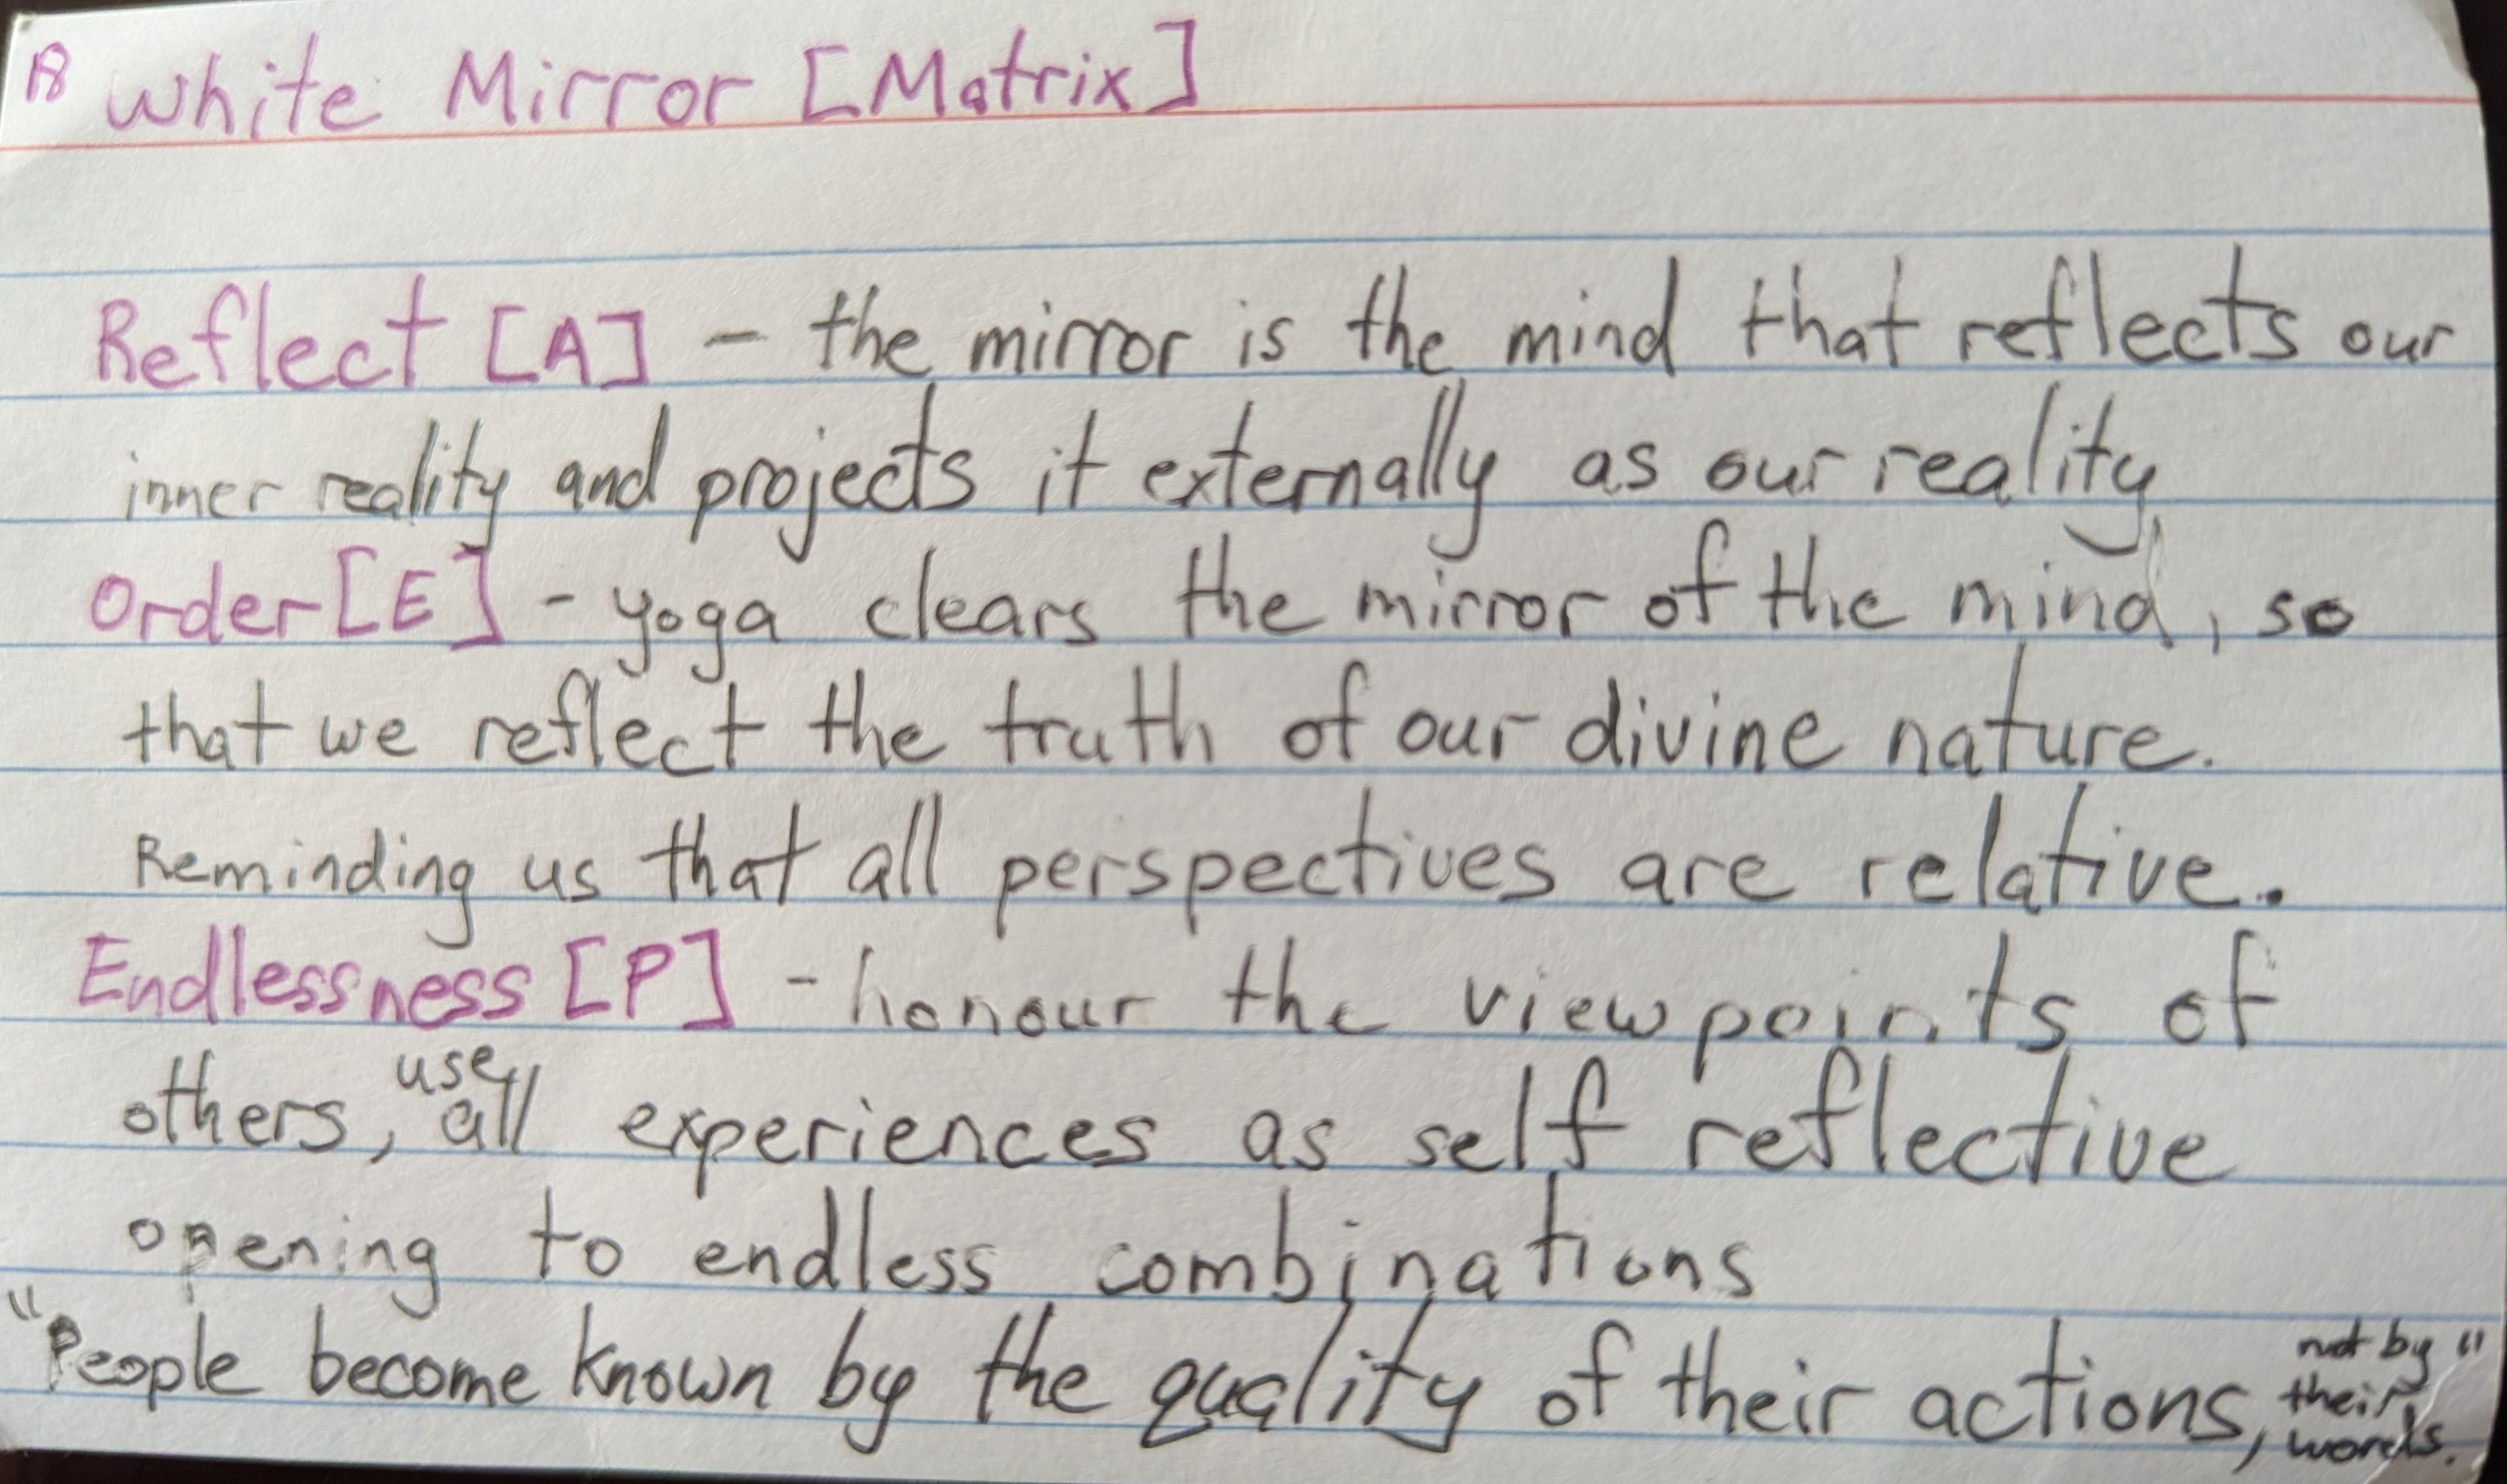 18 White Mirror [Matrix]
Reflect [A] - the mirror is the mind that reflects our
inner reality and projects it externally as our reality
Order [E] - yoga clears the mirror of the mind, so
that we reflect the truth of our divine nature.
Reminding us that all perspectives are relative.
Endlessness [P] - honour the viewpoints of
others, use all experiences as self reflective
opening to endless combinations
"People become known by the quality of their actions, not by their words."